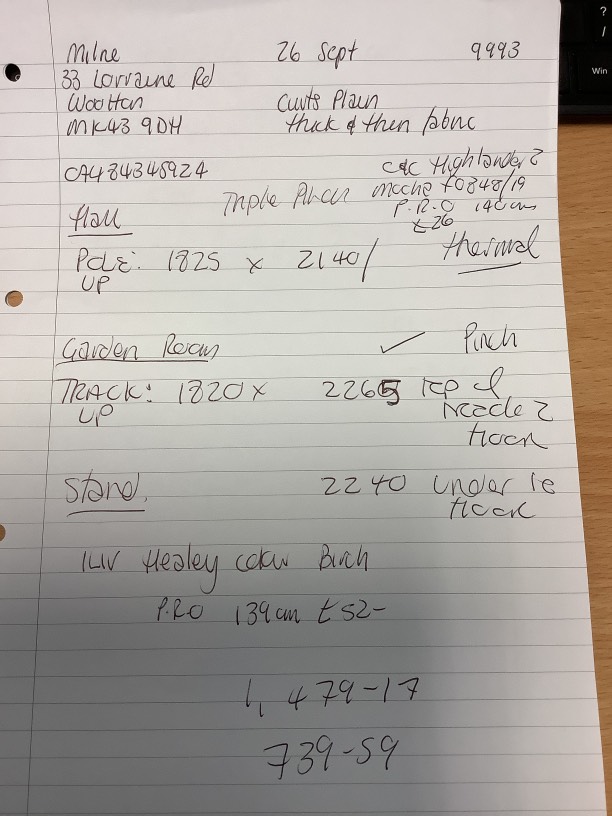 Milne 26 Sept 9993
33 Lorraine Rd
Wootton Curts Plain
MK43 9DH thick & then fabric
CA484345924 Highlander 2
Triple Pleat mocha F0848/19
Hall P.R.O 140cm
£26
POLE: 1825 x 2140/ thermal
UP
Garden Room ✓ Pinch
TRACK: 1820 x 2265 top of
UP Needle 2
Hook
Stand. 2240 under to
Hook
ILIV Healey colour Birch
P.R.O 139cm £52-
1,479-17
739-59
? /
Win